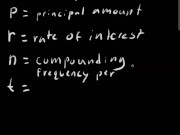 P = principal amount
r = rate of interest
n = compounding
frequency per
t =